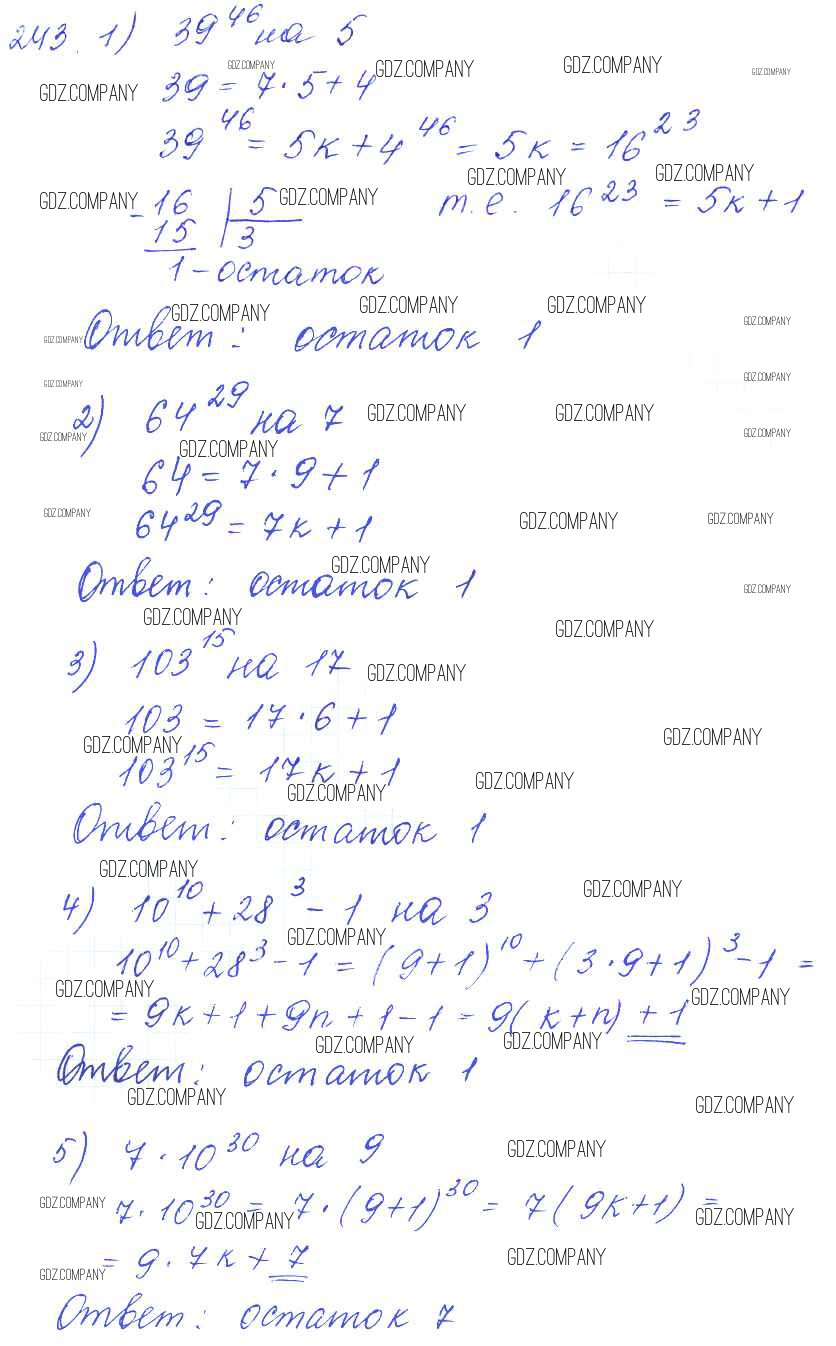 243. 1) 39^46 на 5
GDZ.COMPANY GDZ.COMPANY GDZ.COMPANY GDZ.COMPANY
GDZ.COMPANY 39 = 7·5+4
39^46 = 5к+4^46 = 5к = 16^23
GDZ.COMPANY GDZ.COMPANY
GDZ.COMPANY -16 | 5 GDZ.COMPANY т.е. 16^23 = 5к+1
15 | 3
1 - остаток
GDZ.COMPANY GDZ.COMPANY GDZ.COMPANY GDZ.COMPANY
GDZ.COMPANY Ответ: остаток 1
GDZ.COMPANY GDZ.COMPANY
2) 64^29 на 7 GDZ.COMPANY GDZ.COMPANY GDZ.COMPANY
GDZ.COMPANY GDZ.COMPANY
64 = 7·9+1
GDZ.COMPANY 64^29 = 7к+1 GDZ.COMPANY GDZ.COMPANY
GDZ.COMPANY
Ответ: остаток 1 GDZ.COMPANY
GDZ.COMPANY GDZ.COMPANY
3) 103^15 на 17 GDZ.COMPANY
103 = 17·6+1
GDZ.COMPANY GDZ.COMPANY
103^15 = 17к+1 GDZ.COMPANY
GDZ.COMPANY
Ответ: остаток 1
GDZ.COMPANY GDZ.COMPANY
4) 10^10+28^3-1 на 3
GDZ.COMPANY
10^10+28^3-1 = (9+1)^10+(3·9+1)^3-1 =
GDZ.COMPANY GDZ.COMPANY
= 9к+1+9n+1-1 = 9(к+n)+1
GDZ.COMPANY GDZ.COMPANY
Ответ: остаток 1
GDZ.COMPANY GDZ.COMPANY
5) 7·10^30 на 9 GDZ.COMPANY
GDZ.COMPANY 7·10^30 = 7·(9+1)^30 = 7(9к+1) =
GDZ.COMPANY GDZ.COMPANY
= 9·7к+7 GDZ.COMPANY
GDZ.COMPANY
Ответ: остаток 7